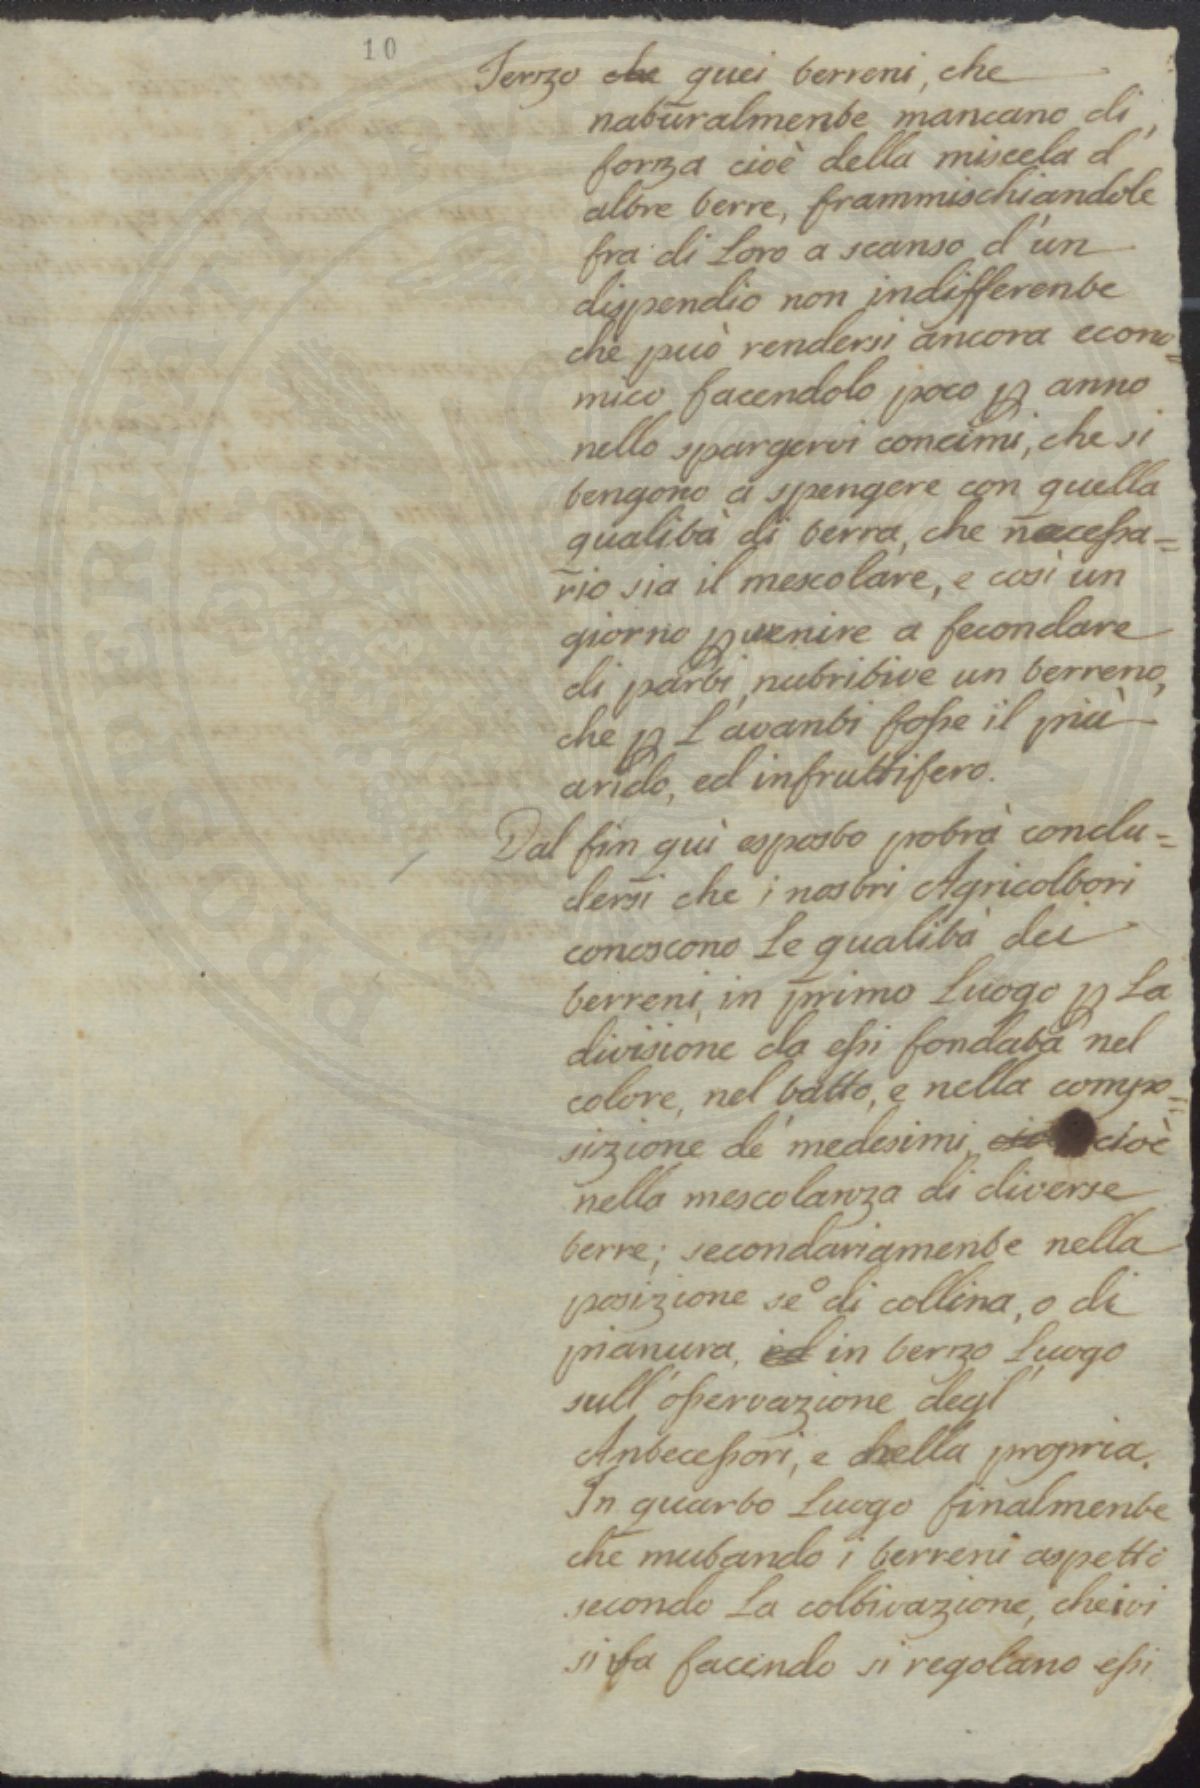 10
Terzo che quei terreni, che
naturalmente mancano di
forza cioè della miscela d'
altre terre, frammischiandole
fra di Loro a scanso d'un
dispendio non indifferente
che può rendersi ancora econo=
mico facendolo poco p anno
nello spargervi concimi, che si
tengono a spengere con quella
qualità di terra, che necessa=
rio sia il mescolare, e così un
giorno pvenire a fecondare
di parti nutritive un terreno,
che p L'avanti fosse il più
arido, ed infruttifero.
Dal fin quì esposto potrà conclu=
dersi che i nostri Agricoltori
conoscono Le qualità dei
terreni, in primo Luogo p La
divisione da essi fondata nel
colore, nel tatto, e nella compo=
sizione de' medesimi, cioè
nella mescolanza di diverse
terre; secondariamente nella
posizione se° di collina, o di
pianura, ed in terzo Luogo
sull'osservazione degl'
Antecessori, e della propria.
In quarto Luogo finalmente
che mutando i terreni aspetti
secondo La coltivazione, che ivi
si fa facendo si regolano essi
PROSPERITATI PUBLICAE